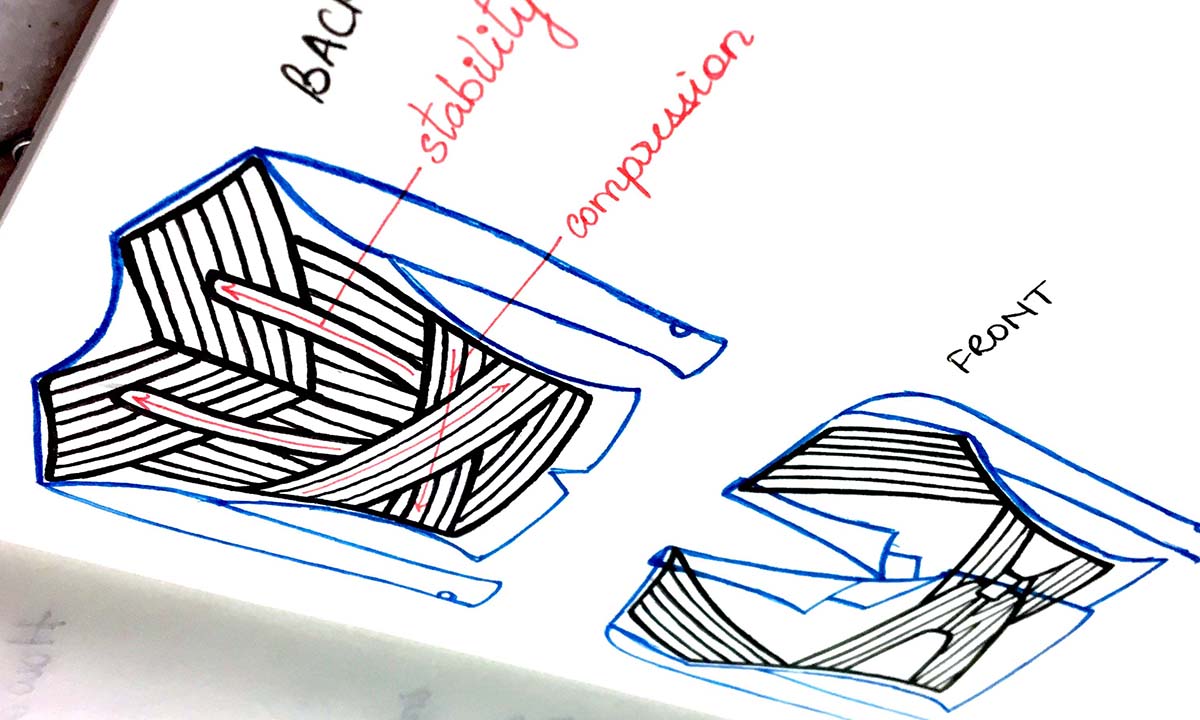 stability
compression
FRONT